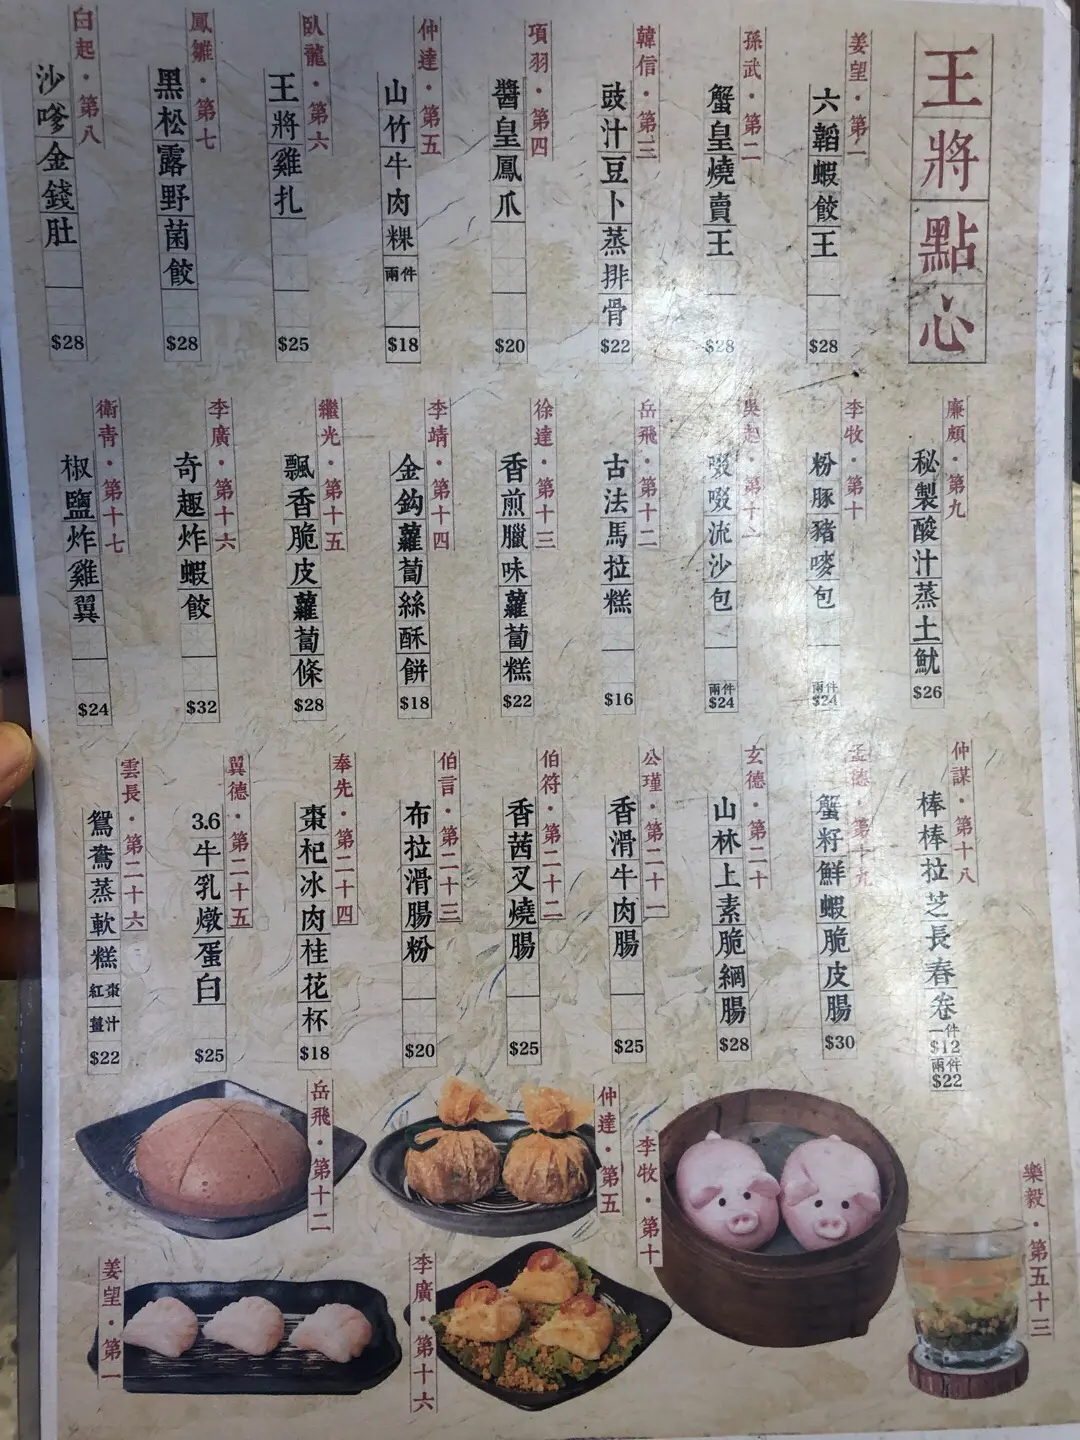 王將點心
姜望·第一
六韜蝦餃王
$28
孫武·第二
蟹皇燒賣王
$28
韓信·第三
豉汁豆卜蒸排骨
$22
項羽·第四
醬皇鳳爪
$20
仲達·第五
山竹牛肉粿 兩件
$18
臥龍·第六
王將雞扎
$25
鳳雛·第七
黑松露野菌餃
$28
白起·第八
沙嗲金錢肚
$28
廉頗·第九
秘製酸汁蒸土魷
$26
李牧·第十
粉豚豬嘜包
兩件
$24
吳起·第十一
啜啜流沙包
兩件
$24
岳飛·第十二
古法馬拉糕
$16
徐達·第十三
香煎臘味蘿蔔糕
$22
李靖·第十四
金鈎蘿蔔絲酥餅
$18
繼光·第十五
飄香脆皮蘿蔔條
$28
李廣·第十六
奇趣炸蝦餃
$32
衛青·第十七
椒鹽炸雞翼
$24
仲謀·第十八
棒棒拉芝長春卷
一件
$12
兩件
$22
孟德·第十九
蟹籽鮮蝦脆皮腸
$30
玄德·第二十
山林上素脆網腸
$28
公瑾·第二十一
香滑牛肉腸
$25
伯符·第二十二
香茜叉燒腸
$25
伯言·第二十三
布拉滑腸粉
$20
奉先·第二十四
棗杞冰肉桂花杯
$18
翼德·第二十五
3.6牛乳燉蛋白
$25
雲長·第二十六
鴛鴦蒸軟糕
紅棗
薑汁
$22
岳飛·第十二
仲達·第五
李牧·第十
樂毅·第五十三
姜望·第一
李廣·第十六